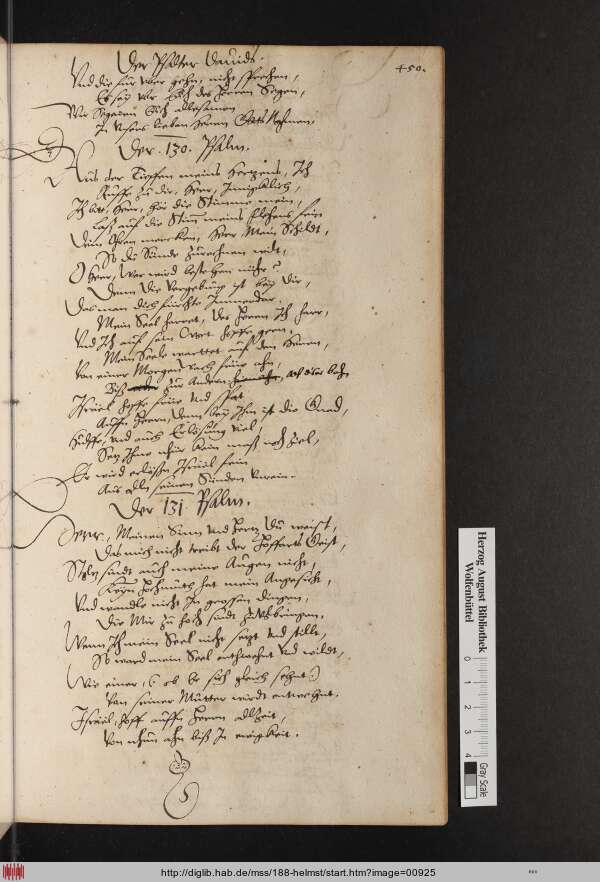 Der Psalter Dauids.
450.
Vnd die für vber gehn, nicht sprechen,
Es sey vber Euch des Herren Segen,
Wir Segenen Euch allesamen
In Vnsers lieben Herrn Gotts Nahmen.
Der . 130. Psalm.
Aus der Tieffen meins Hertzens, Ich
Ruffe zu dir, Herr, Innigklich,
Ich bitt, Herr, hör die Stimme mein,
Laß auf die Stim meins flehens fein
Dein Ohren mercken, Herr Mein Schildt,
So du Sünde zurechnen wilt,
O Herr, Wer wird bestehen nicht?
Denn die Vergebung ist bey dir,
Das man dich fürchte Immerdar.
Mein Seel harret, des Herrn Ich harr,
Vnd Ich auf sein Wort hoffe gern,
Mein Seele warttet auf den Herren,
Von einer Morgen wach frue ahn,
Biß zur Andern
Israel hoffe frue vnd spat
Auffn Herrn, Denn bey Ihm ist die Gnad,
Hülffe, vnd auch Erlösung viel,
Sey Ihme nhur kein maß noch Ziel,
Er wird erlösen Israel fein
Aus alln seinen Sünden Vnrein.
Der 131 Psalm.
Herr, Meinen Sinn vnd Hertz Du weist,
Das mich nicht treibt der Hoffarts Geist,
Stoltz sindt auch meine Augen nicht,
Kein Hochmuth hat mein Angesicht,
Vnd wandle nicht In grossen dingen,
Die Mir zu hoch sindt zuVolbringen.
Wenn Ich mein Seel nicht setzt vnd stillt,
So ward mein Seel entwehnet vnd wildt,
Wie einer, (: ob er sich gleich sehnt :)
Von seiner Mutter wirdt entwehnt.
Israel, hoff auffn Herren allZeit,
Von nhun ahn biß In ewigkeit.
Herzog August Bibliothek
Wolfenbüttel
0 1 2 3 4
Gray Scale
http://diglib.hab.de/mss/188-helmst/start.htm?image=00925